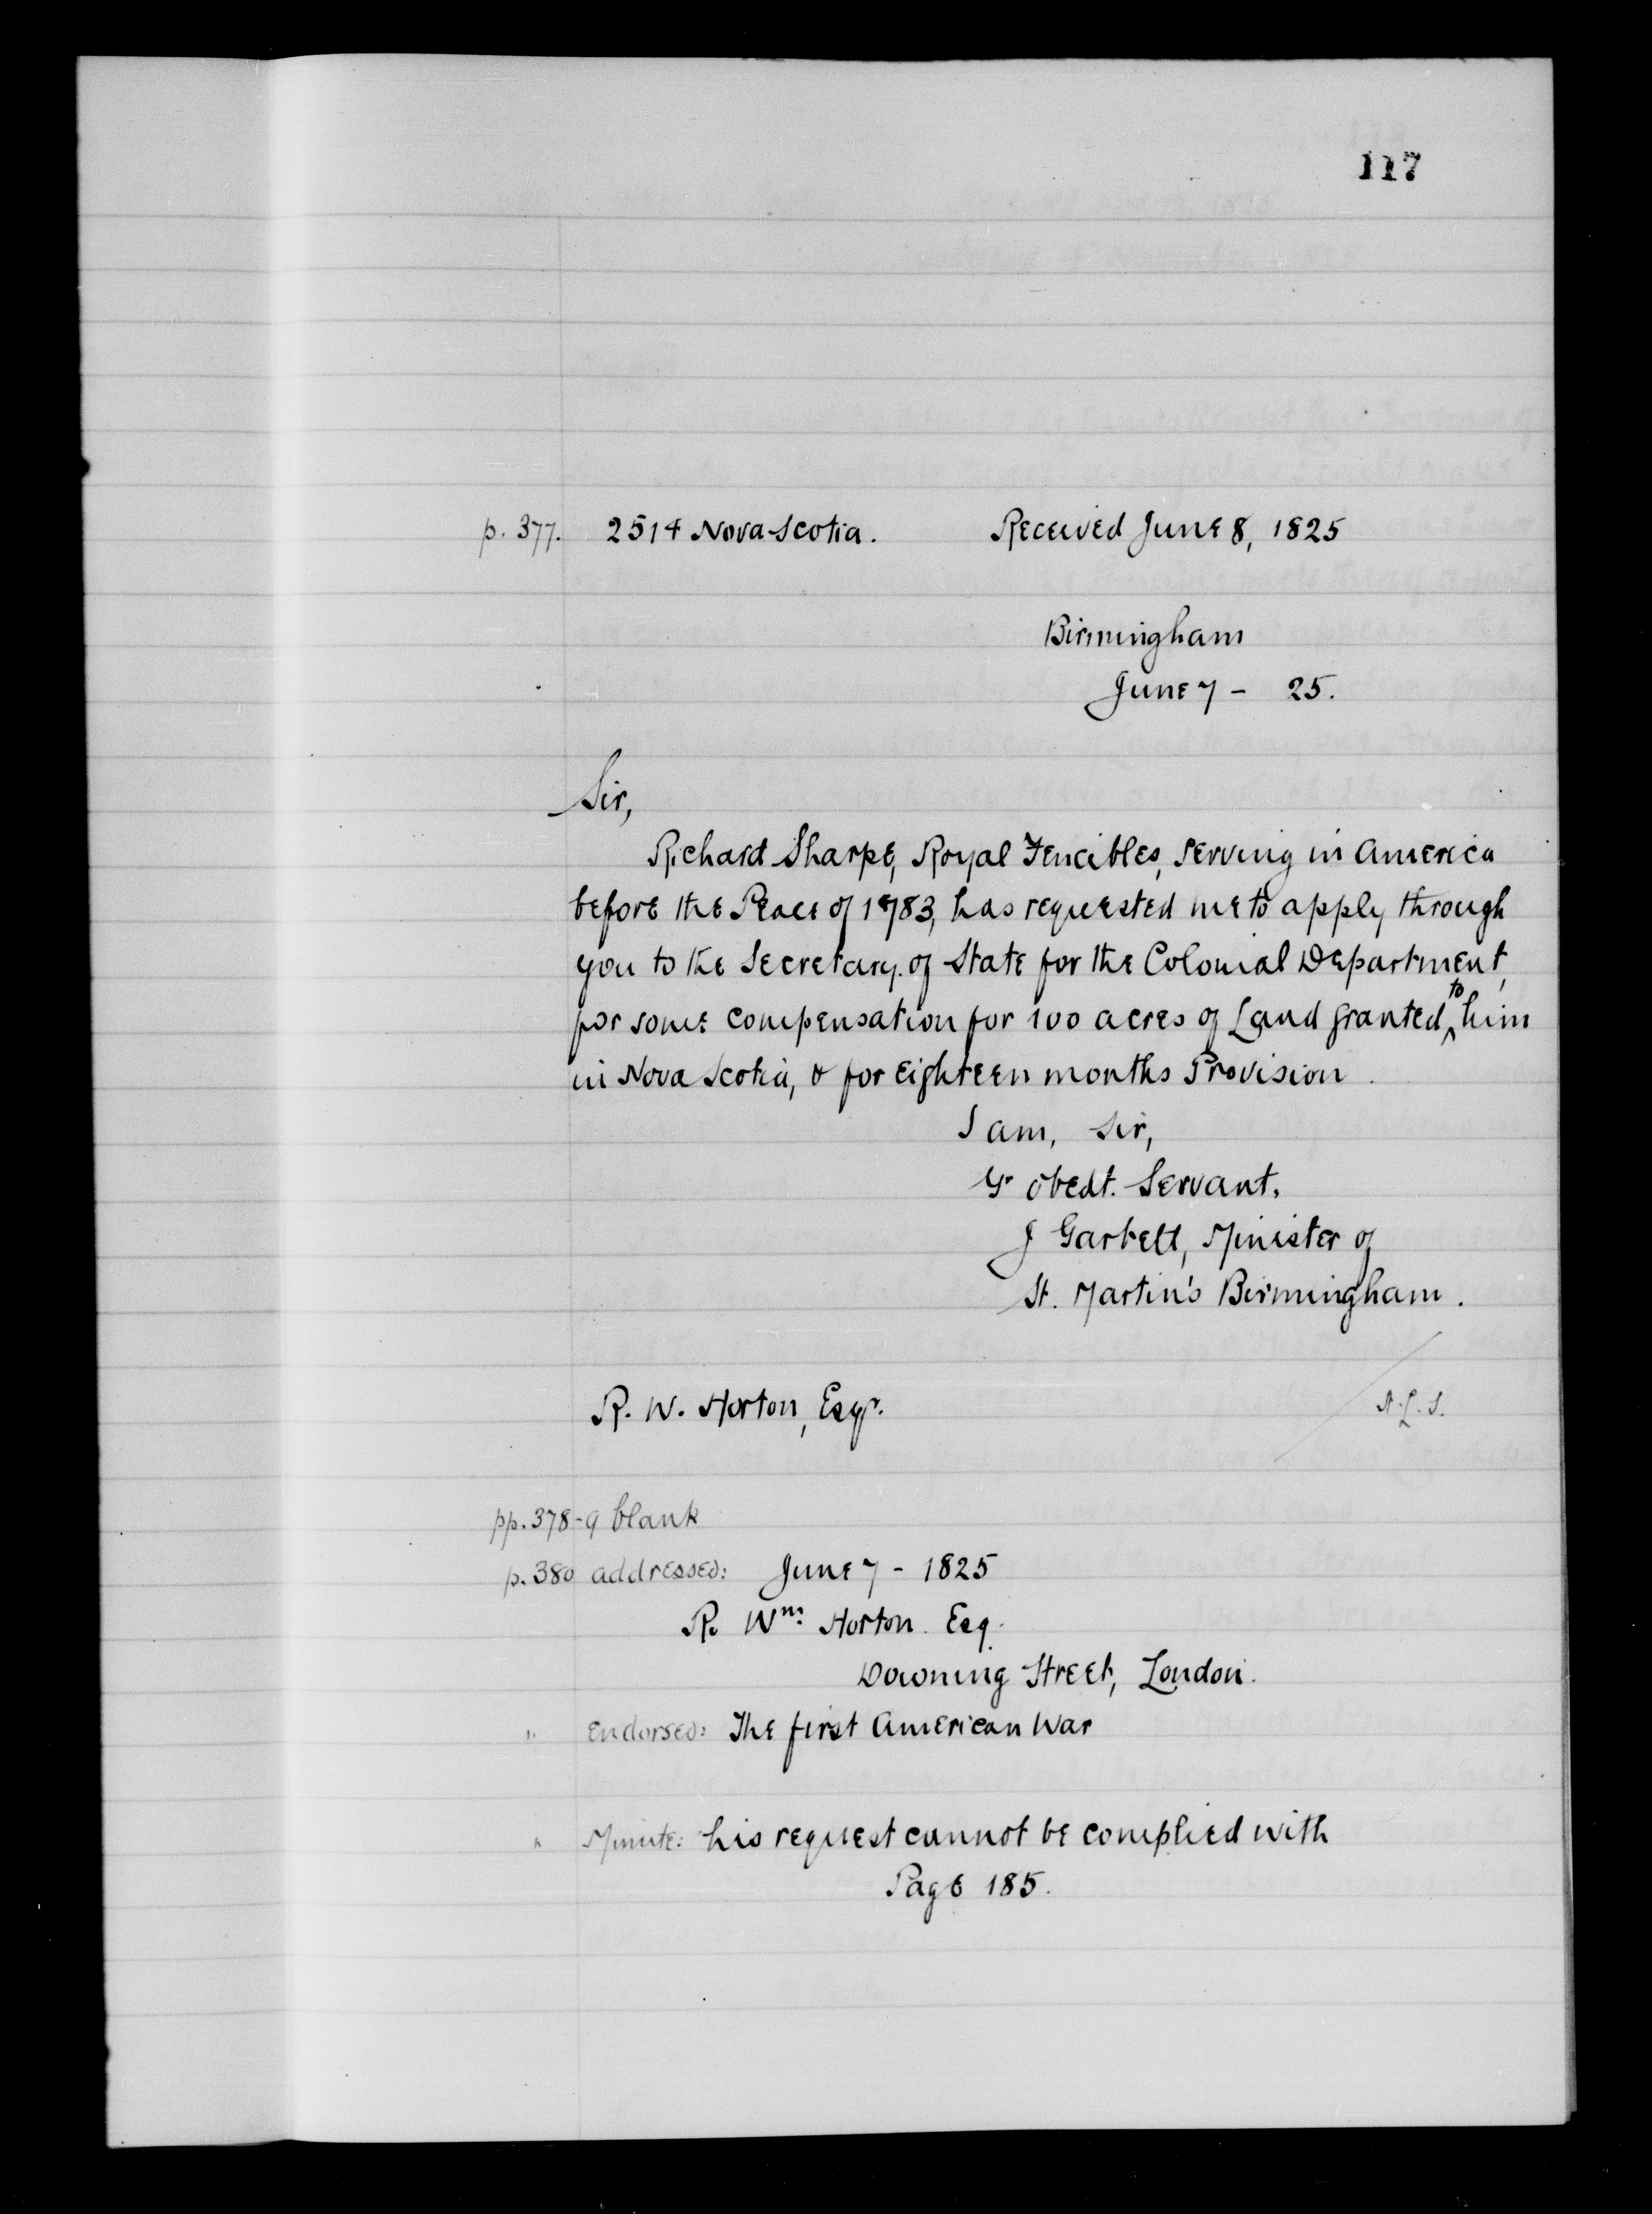 117
p. 377. 2514 Nova Scotia. Received June 8, 1825
Birmingham
June 7 - 25.
Sir,
Richard Sharpe, Royal Fencibles, serving in America
before the Peace of 1783, has requested me to apply through
you to the Secretary of State for the Colonial Department,
for some compensation for 100 acres of Land granted to him
in Nova Scotia, & for eighteen months Provision.
I am, Sir,
Yr obedt. Servant,
J Garbett, Minister of
St. Martin's Birmingham.
R. W. Horton, Esqr.
A.L.S.
pp. 378-9 blank
p. 380 addressed: June 7 - 1825
R. Wm. Horton Esq.
Downing Street, London.
" Endorsed: The first American War
" Minute: his request cannot be complied with
Page 185.